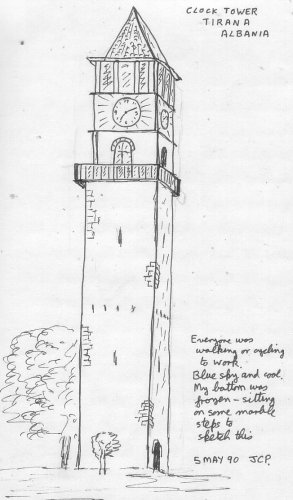 CLOCK TOWER
TIRANA
ALBANIA
Everyone was
walking or cycling
to work.
Blue sky and cool.
My bottom was
frozen - sitting
on some marble
steps to
sketch this
5 MAY 90 JCP.